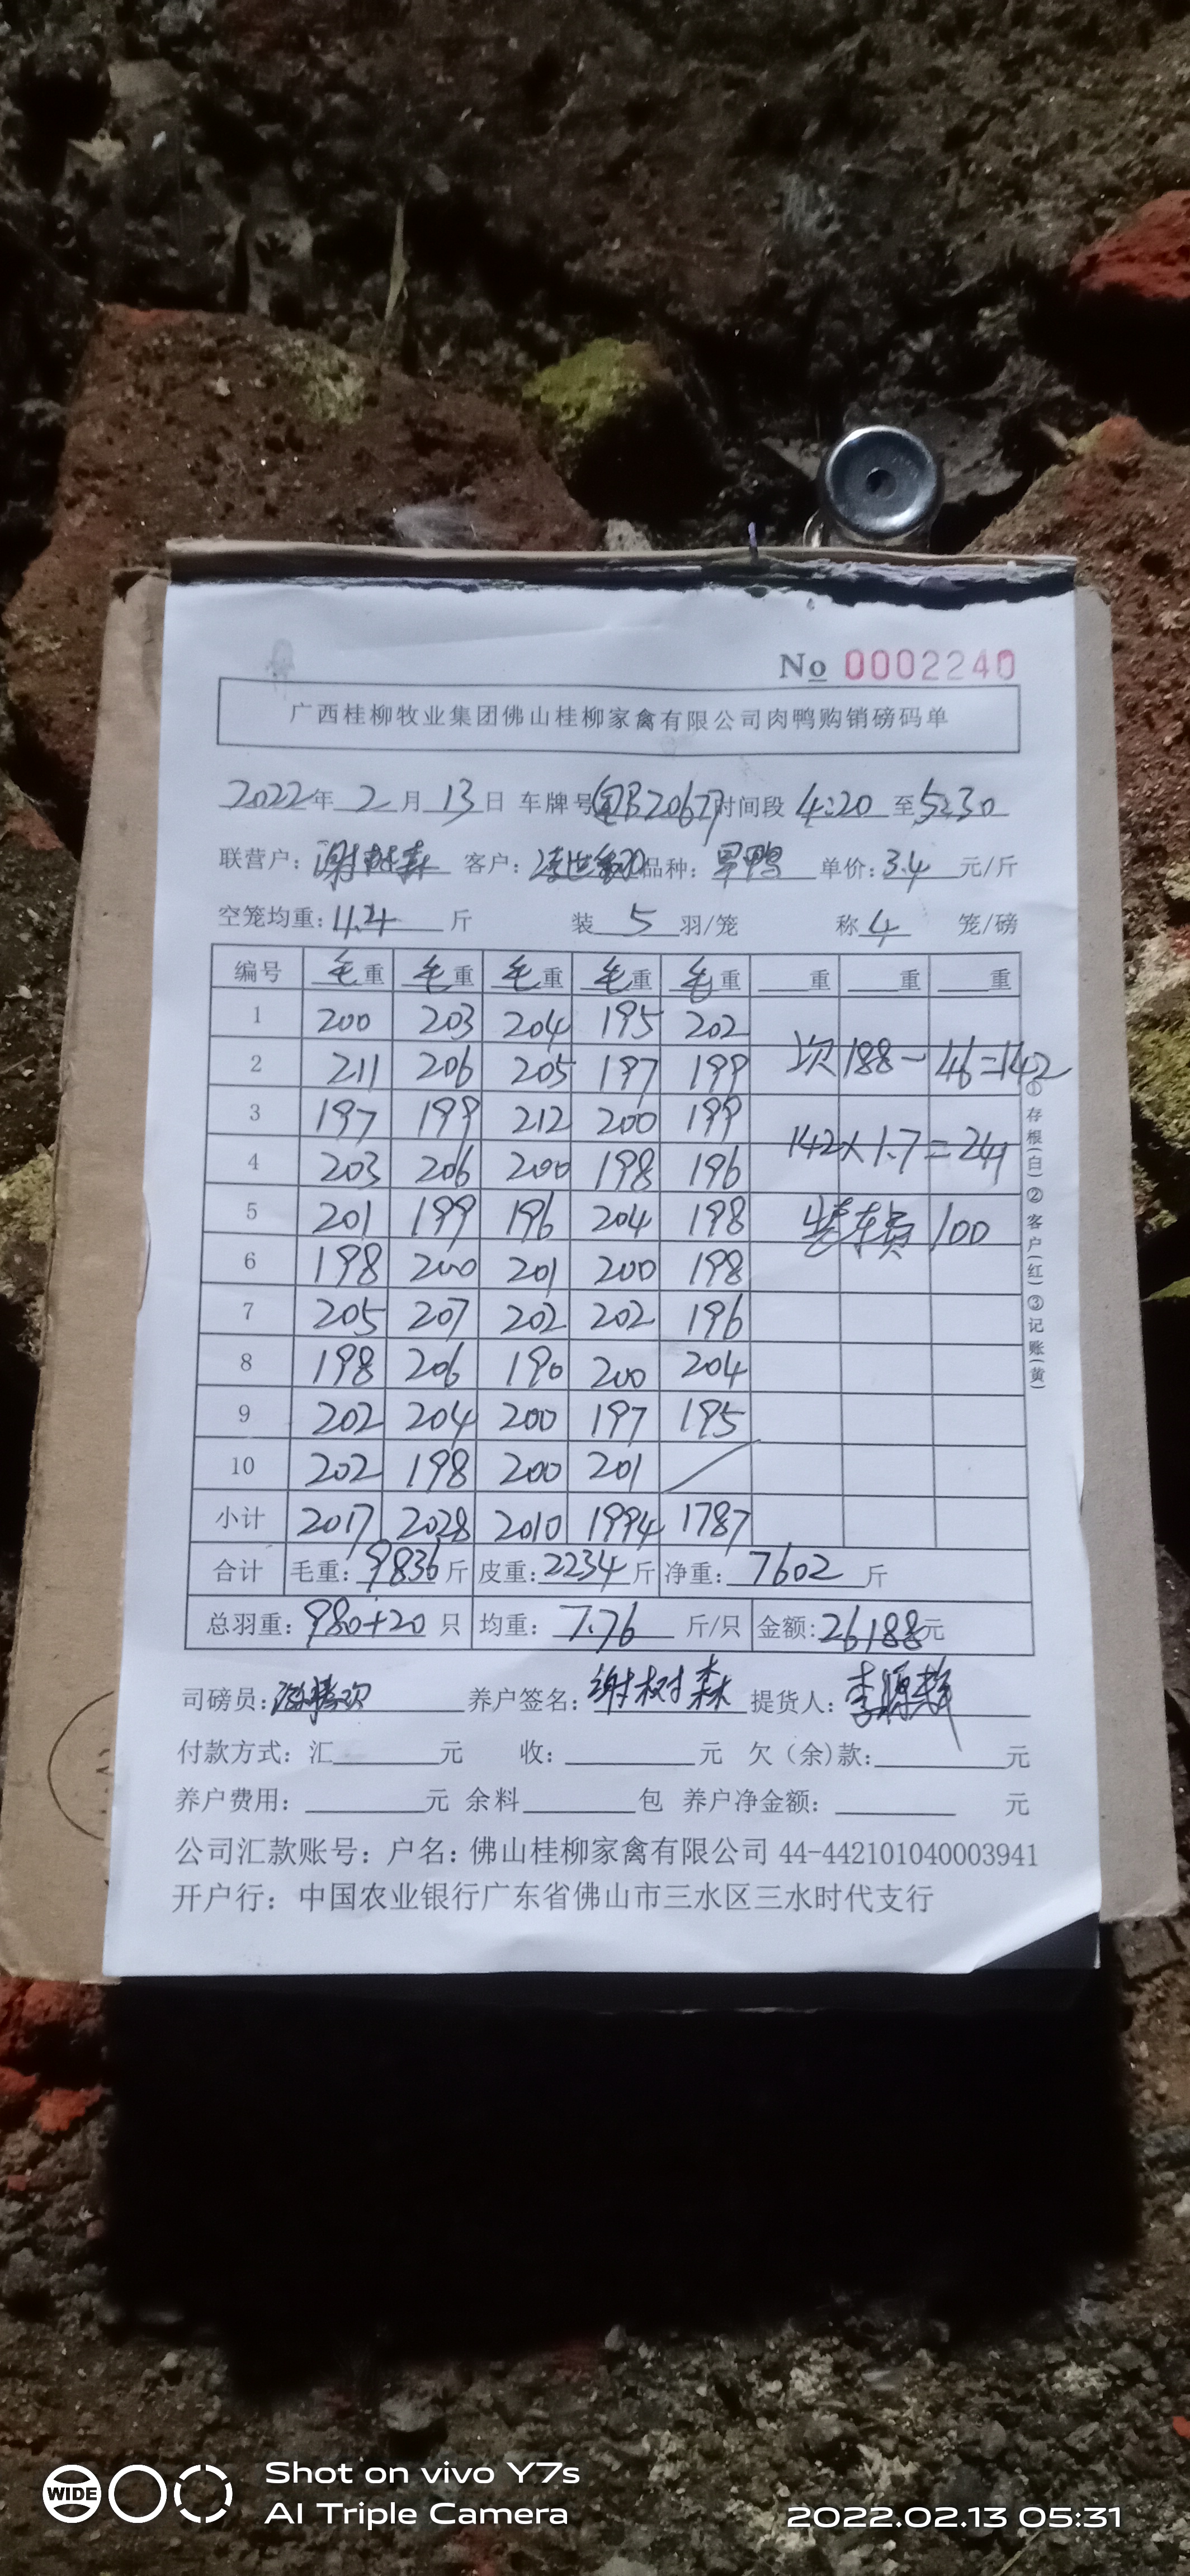 No 0002240
广西桂柳牧业集团佛山桂柳家禽有限公司肉鸭购销磅码单
2022年 2 月 13 日 车牌号 时间段 4:20 至 5:30
联营户: 谢树森 客户: 品种: 旱鸭 单价: 3.4 元/斤
空笼均重: 11.4 斤 装 5 羽/笼 称 4 笼/磅
编号 毛重 毛重 毛重 毛重 毛重 重 重 重
1 200 203 204 195 202
2 211 206 205 197 199 次 188-46=142
3 197 199 212 200 199
4 203 206 200 198 196 142×1.7=241
5 201 199 196 204 198 装车费 100
6 198 200 201 200 198
7 205 207 202 202 196
8 198 206 190 200 204
9 202 204 200 197 195
10 202 198 200 201
小计 2017 2028 2010 1994 1787
合计 毛重: 9836 斤 皮重: 2234 斤 净重: 7602 斤
总羽重: 980+20 只 均重: 7.76 斤/只 金额: 26188元
①存根(白)②客户(红)③记账(黄)
司磅员: 养户签名: 谢树森 提货人:
付款方式: 汇 元 收: 元 欠(余)款: 元
养户费用: 元 余料 包 养户净金额: 元
公司汇款账号: 户名: 佛山桂柳家禽有限公司 44-442101040003941
开户行: 中国农业银行广东省佛山市三水区三水时代支行
WIDE
Shot on vivo Y7s
AI Triple Camera
2022.02.13 05:31